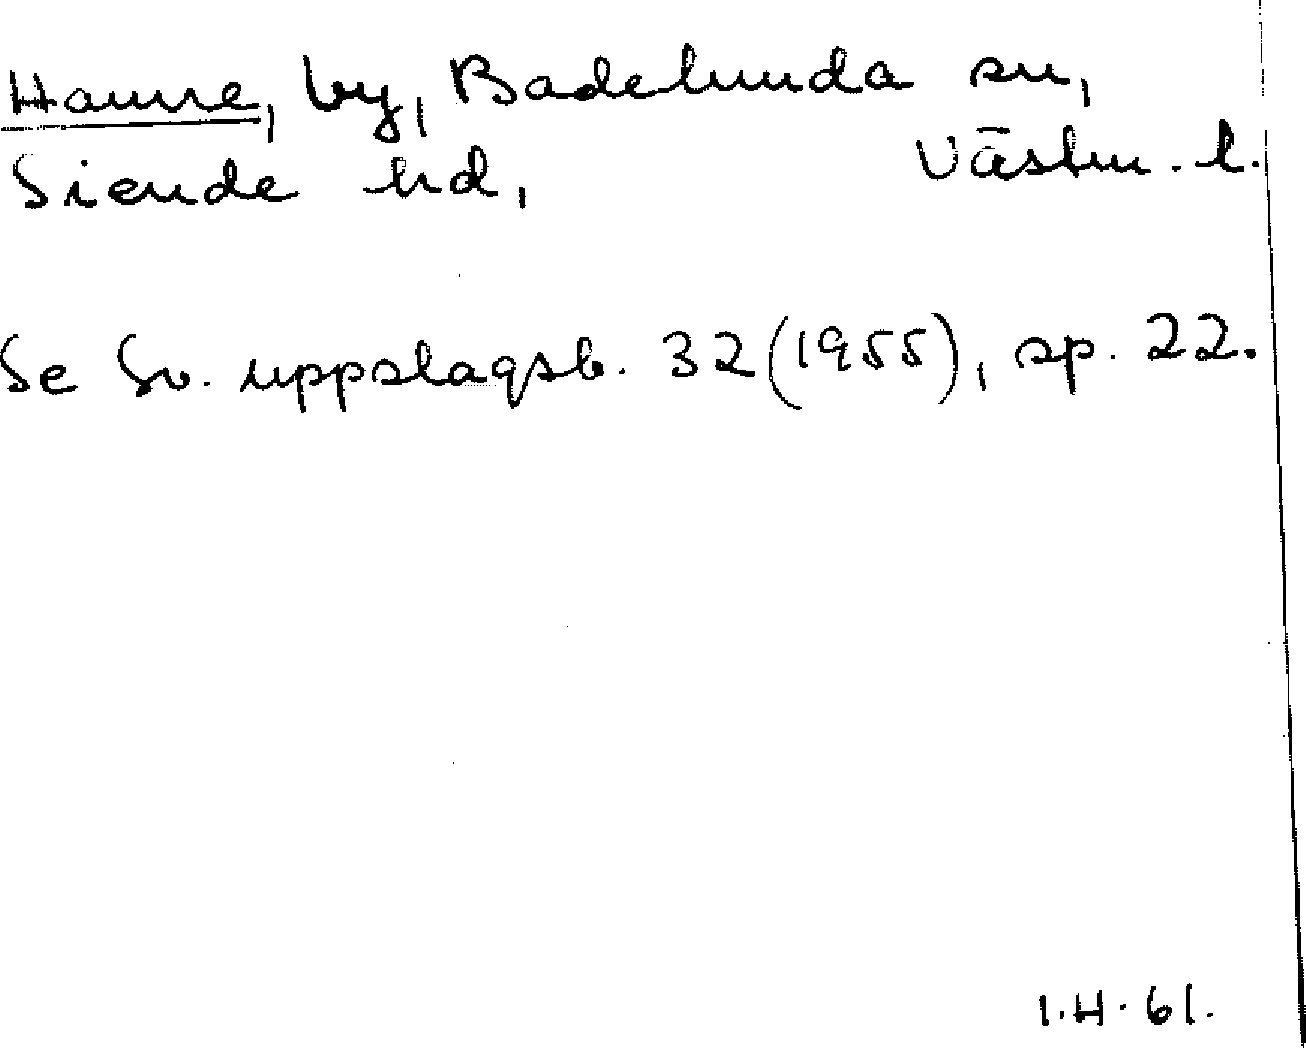 Hamre, by, Badelunda sn,
Siende hd, Västm. l.
Se Sv. uppslagsb. 32 (1955), sp. 22.
I.H. 61.